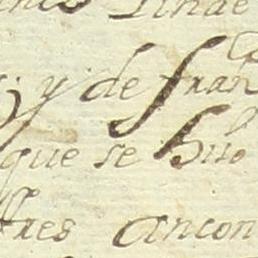 Linde
y de fran
que se hizo
tres ancon